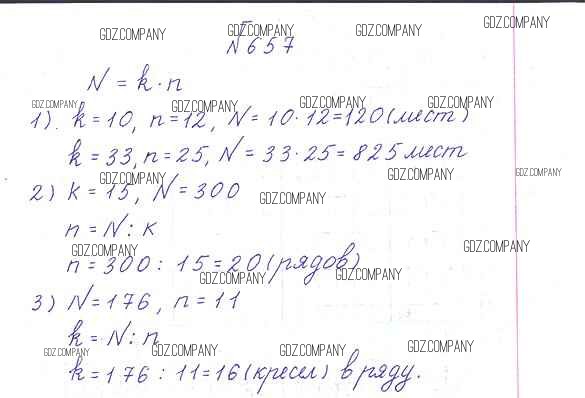 GDZ.COMPANY GDZ.COMPANY GDZ.COMPANY GDZ.COMPANY
№657
N = k · n
GDZ.COMPANY GDZ.COMPANY GDZ.COMPANY GDZ.COMPANY
1). k = 10, n = 12, N = 10 · 12 = 120 (мест)
k = 33, n = 25, N = 33 · 25 = 825 мест
GDZ.COMPANY GDZ.COMPANY GDZ.COMPANY
2) k = 15, N = 300
GDZ.COMPANY
n = N : k
GDZ.COMPANY GDZ.COMPANY
n = 300 : 15 = 20 (рядов)
GDZ.COMPANY GDZ.COMPANY
3) N = 176, n = 11
k = N : n
GDZ.COMPANY GDZ.COMPANY GDZ.COMPANY GDZ.COMPANY
k = 176 : 11 = 16 (кресел) в ряду.